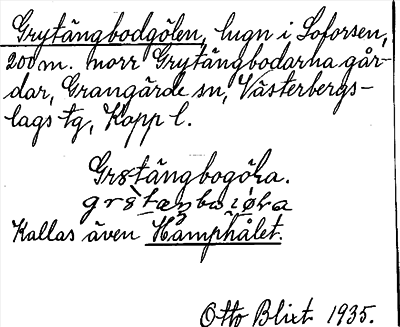 Grytängbodgölen, lugn i Loforsen,
200 m. norr Grytängbodarna går-
dar, Grangärde sn, Västerbergs-
lags tg, Kopp l.
Kallas även Hamphålet.
Otto Blixt 1935.